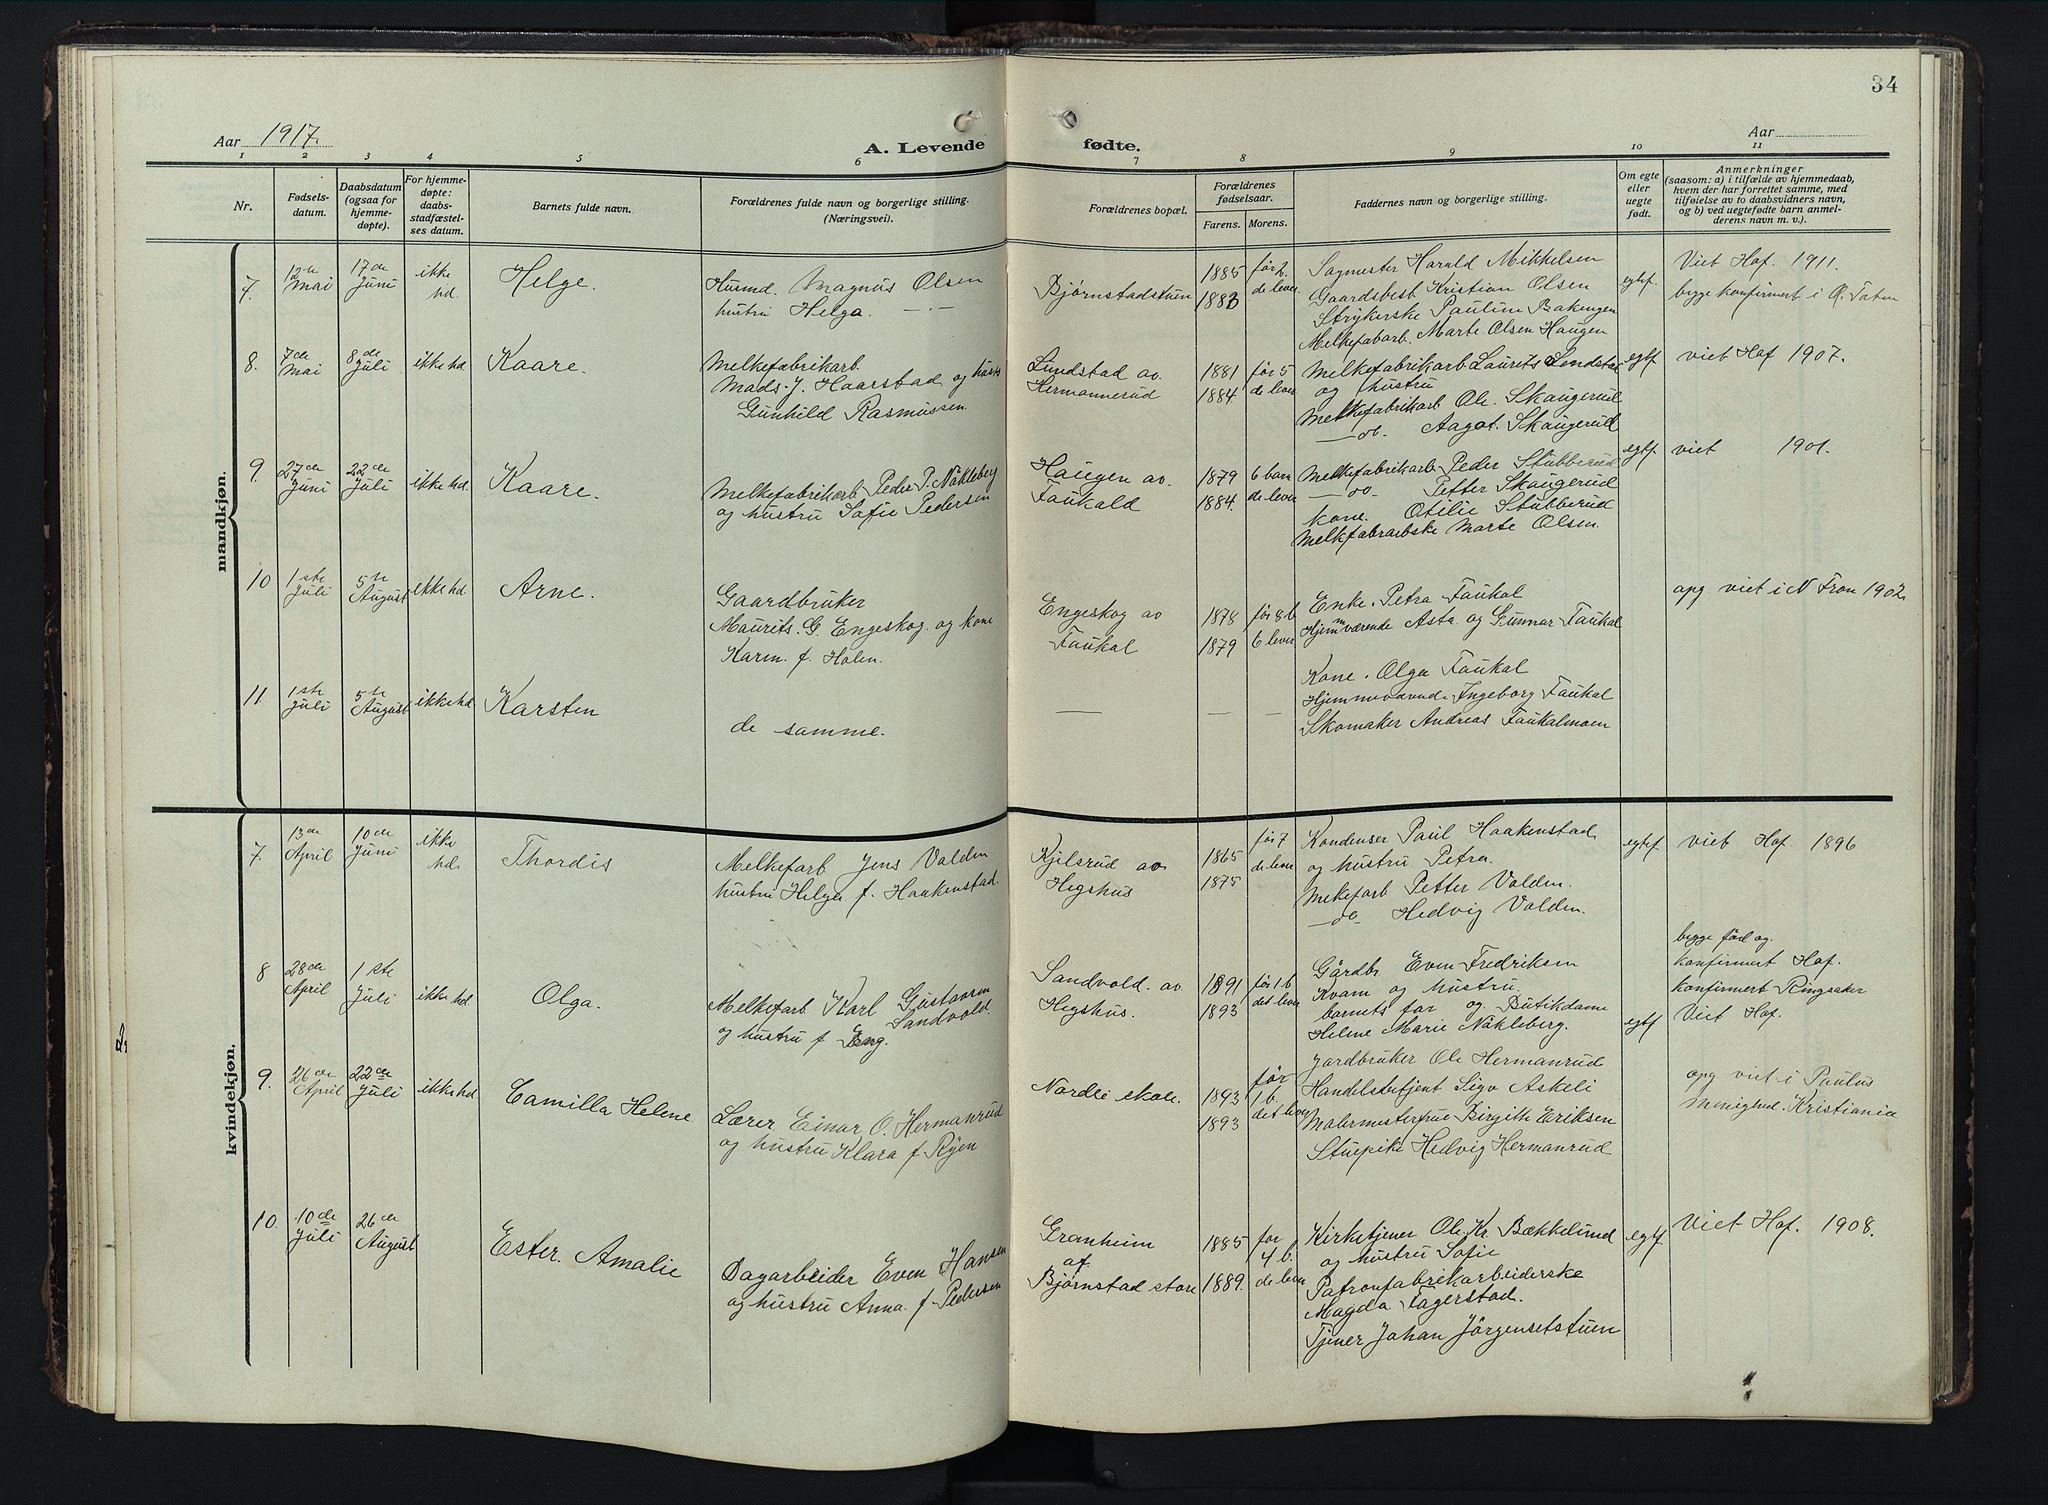 34
Aar 1917.
A. Levende fødte.
Aar
1 2 3 4 5 6 7 8 9 10 11
Nr.
Fødsels-
datum.
Daabsdatum
(ogsaa for
hjemme-
døpte).
For hjemme-
døpte:
daabs-
stadfæstel-
ses datum.
Barnets fulde navn.
Forældrenes fulde navn og borgerlige stilling.
(Næringsvei).
Forældrenes bopæl.
Forældrenes
fødselsaar.
Farens. Morens.
Faddernes navn og borgerlige stilling.
Om egte
eller
uegte
født.
Anmerkninger
(saasom: a) i tilfælde av hjemmedaab,
hvem der har forrettet samme, med
tilføielse av to daabsvidners navn,
og b) ved uegtefødte barn anmel-
derens navn m. v.).
mandkjøn.
7.
12te
mai
17de
Juni
ikke
hd.
Helge.
Husmd. Magnus Olsen
hustru Helga. —.—
Bjørnstadstuen
1885
1883
før 2.
de lever
Sagmester Harald Mikkelsen
Gaardsbesb Kristian Olsen
Strykerske Pauline Bakengen
Melkefabarb. Marte Olsen Haugen
egtef
Viet Hof. 1911.
begge konfirmert i Ø. Toten
8.
7de
Mai
8de
Juli
ikke hd
Kaare.
Melkefabrikarb.
Mads. J. Haarstad og hust
Gunhild Rasmussen
Lundstad av
Hermannerud
1881
1884
før 5
de lever
Melkefabrikarb Laurits Londstad
og hustru
Melkefabrikarb Ole. Skaugerud
—do— Aagot. Skaugerud
egtf
viet Hof 1907.
9.
27de
Juni
22de
Juli
ikke hd.
Kaare.
Melkefabrikarb Peder P. Nökleberg
og hustru Sofie Pedersen
Haugen av.
Faukald
1879
1884.
6 barn
de lever
Melkefabrikarb Peder Stubberud
—do— Petter Skaugerud
Kone. Otilie Stubberud
Melkefabrarbske Marte Olsen.
egtf.
viet 1901.
10
1ste
Juli
5te
August
ikke hd
Arne.
Gaardbruker
Maurits. G. Engeskog. og kone
Karen. f. Holen.
Engeskog av
Faukal
1878
1879
før 8 b
6 lever
Enke. Petra Faukal
Hjemmværende Asta og Gunnar Faukal
opg viet i N Fron 1902.
11.
1ste
Juli
5te
August
ikke hd
Karsten
de samme.
— — —
Kone. Olga Faukal
Hjemmeværende Ingeborg Faukal
Skomaker Andreas Faukalmoen
kvindekjøn.
7.
13de
April
10de
Juni
ikke
hd.
Thordis
Melkefarb Jens Volden
hustru Helga f. Haakenstad.
Kjelsrud av
Hegshus
1865
1875
før 7
de lever
Kondenser Paul Haakenstad
og hustru Petra.
Mekefarb Petter Volden.
—do— Hedvig Volden.
egtef
viet Hof. 1896
8
28de
April
1ste
Juli
ikke hd
Olga.
Melkefarb Karl Gustavsen
Sandvold.
og hustru f Eng.
Sandvold. av
Hegshus.
1891
1893
før 1 b
det lever
Gårdbr Even Fredriksen
Kvam og hustru.
barnets far og Butikdame
Helene Marie Nökleberg.
egtf
begge fød og
konfirmert Hof.
konfirmert Ringsaker
Viet Hof.
9.
26de
April
22de
Juli
ikke hd
Camilla Helene
Lærer Einar O. Hermanrud
og hustru Klara f Ryen
Nordli skole.
1893
1893
før
1 b.
det lever
Jordbruker Ole Hermanrud
Handelsbetjent Sigv Askeli
Malermesterfrue Birgith Eriksen
Stuepike Hedvig Hermanrud
opg viet i Paulus
Menighed. Kristiania
10.
10de
Juli
26de
August
Ester. Amalie
Dagarbeider Even Hansen
og hustru Anna. f. Pedersen
Granheim
af
Bjørnstad store
1885
1889.
for
4 b.
de lever
Kirketjener Ole. Kr. Bækkelund
og hustru Sofie
Patronfabrikarbeiderske
Magda Fagerstad.
Tjener Johan Jörgensetstuen
egtf.
Viet Hof. 1908.